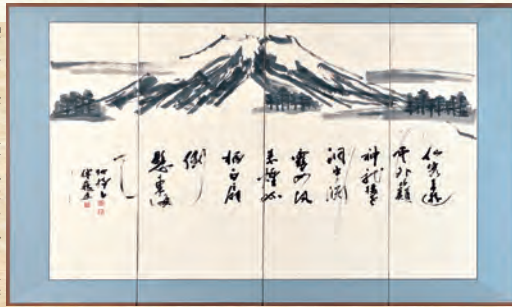 仙客来遊
雲外巓
神龍栖老
洞中淵
雪如紈
素煙如
柄白扇
倒
懸東海
天